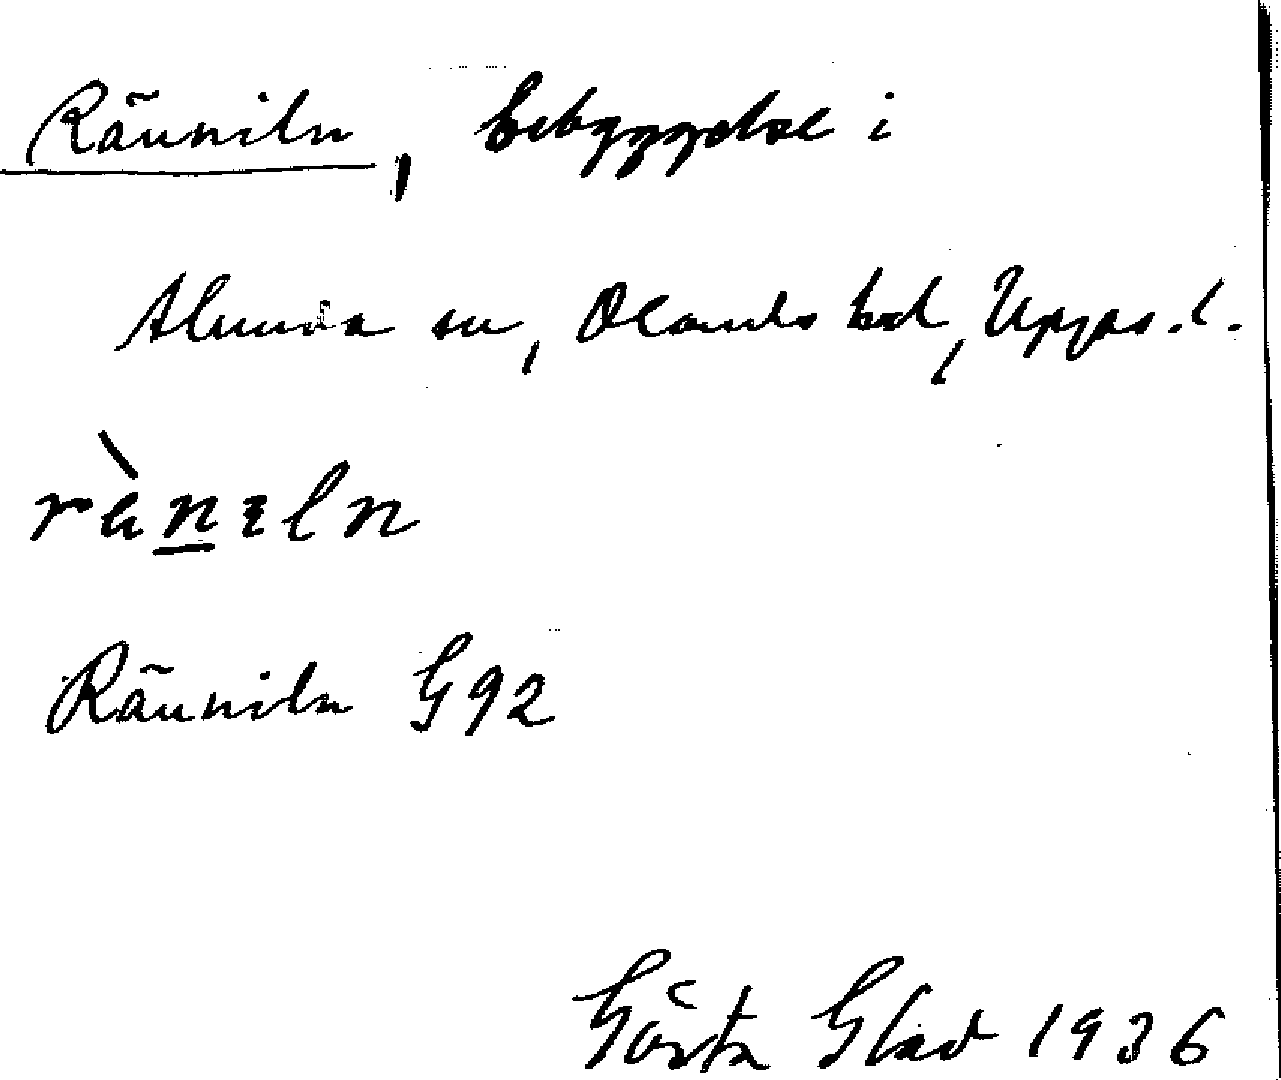 Ränniln, bebyggelse i
Alunda sn, Olands hd, Upps. l.
Ränniln G 92
Gösta Glad 1936